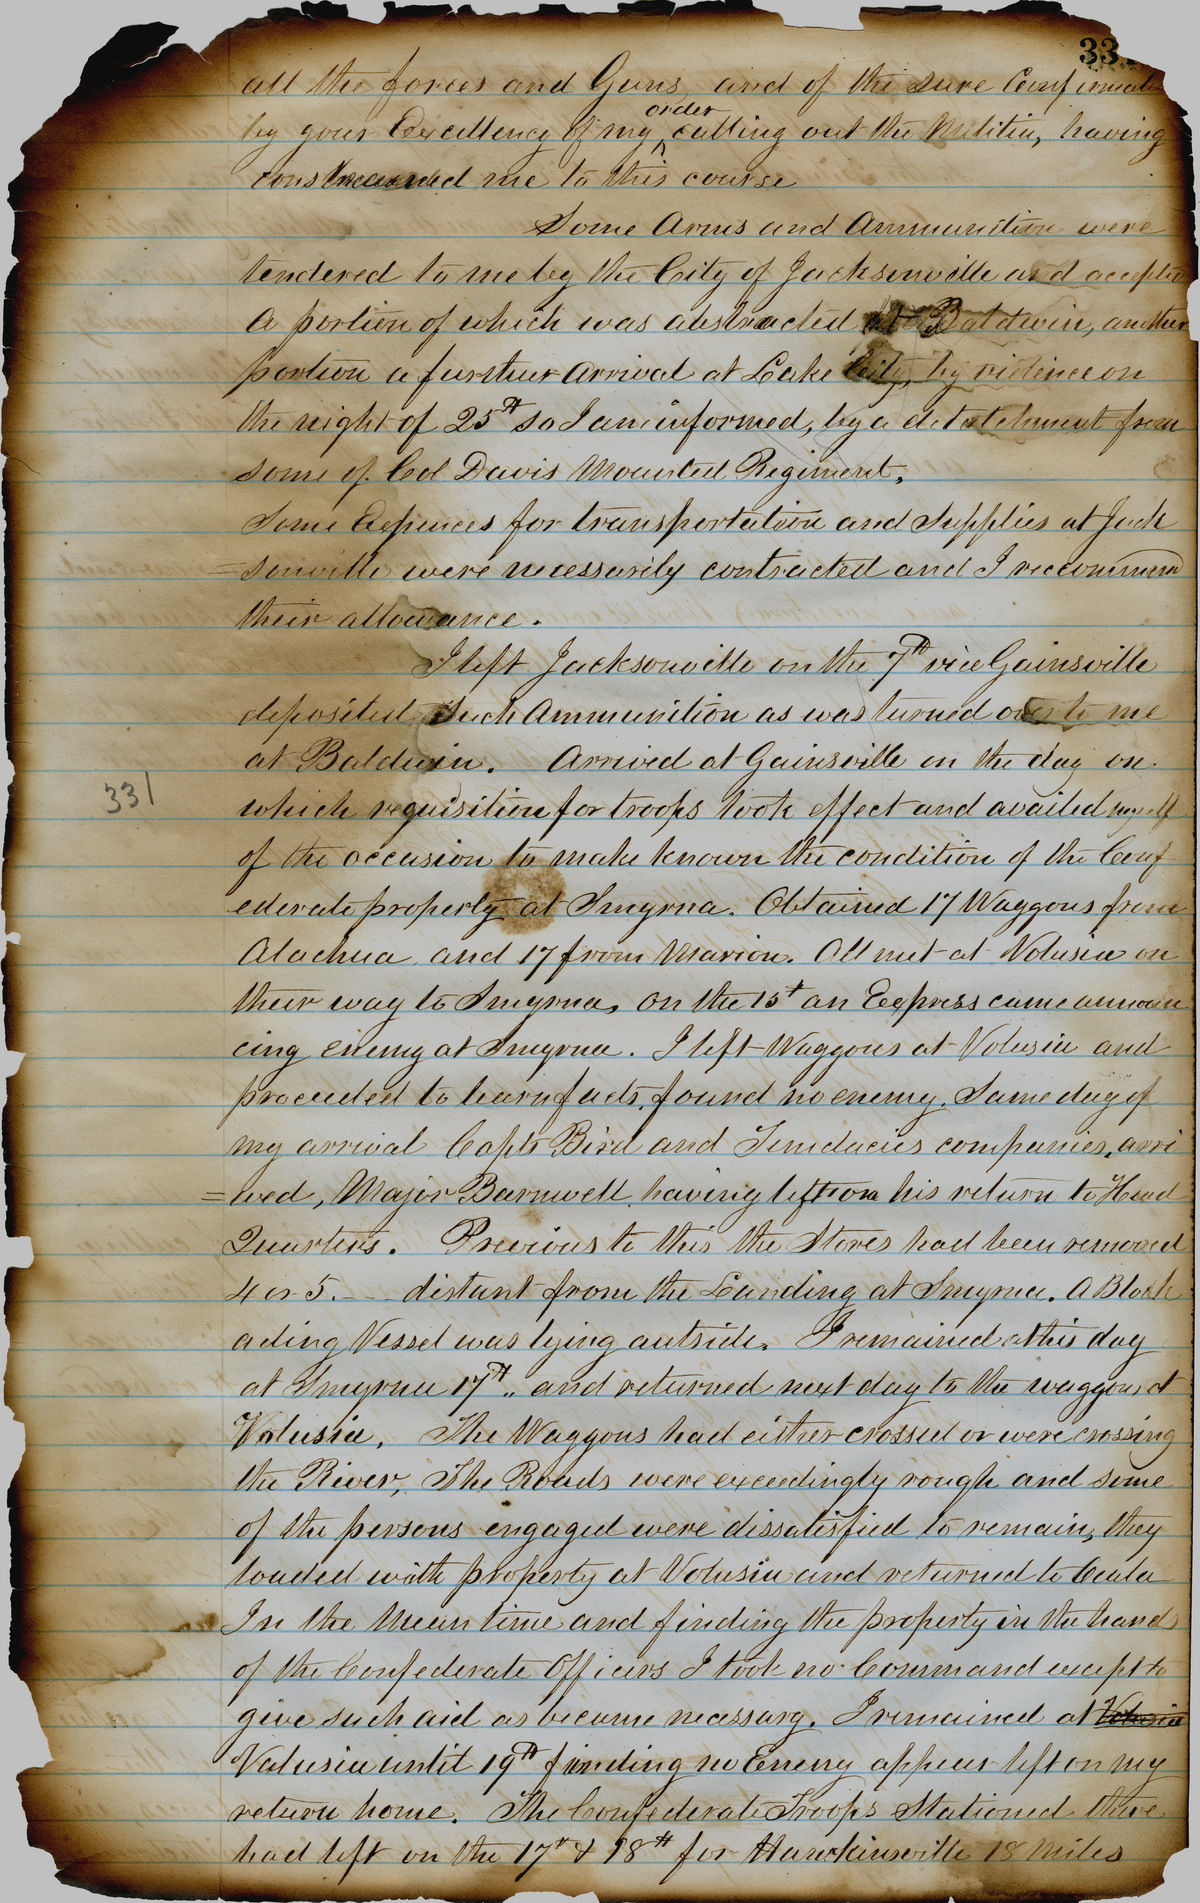 33
all the forces and Guns, and of the sure Confirmat
by your Excellency of my order calling out the Militia, having
constrained me to this course
Some Arms and Ammunition were
tendered to me by the City of Jacksonville and accepted
A portion of which was abstracted at Baldwin, another
portion a further arrival at Lake City, by violence on
the night of 25th so I am informed, by a detatchment from
some of Col Davis Mounted Regiment.
Some Expences for transportation and Supplies at Jack
=sonville were necessarily contracted and I reccommend
their allowance.
I left Jacksonville on the 7th vice Gainsville
deposited Such Ammunition as was turned over to me
at Baldwin. Arrived at Gainsville on the day on
331
which requisition for troops took effect and availed myself
of the occasion to make known the condition of the Conf
ederate property at Smyrna. Obtained 17 Waggons from
Alachua, and 17 from Marion. All met at Volusia on
their way to Smyrna, on the 15t an Express came announ
cing enemy at Smyrna. I left Waggons at Volusia and
proceeded to learn facts, found no enemy. Same day of
my arrival Capts Bird and companies, arri
=ved, Major Barnwell having left on his return to Head
Quarters. Previous to this the Stores had been removed
4 or 5 .--- distant from the Landing at Smyrna. A Block
ading Vessel was lying outside. I remained this day
at Smyrna 17th.. and returned next day to the waggons at
Volusia. The Waggons had either crossed or were crossing
the River, The Roads were exceedingly rough and some
of the persons engaged were dissatisfied to remain, they
loaded with property at Volusia and returned to Ocala
In the Mean time and finding the property in the hands
of the Confederate Officers I took no Command except to
give such aid as became necessary. I remained at Volusia
Volusia until 19th finding no Enemy appear left on my
return home. The Confederate Troops Stationed there
had left on the 17th & 18th for Hawkinsville 18 Miles